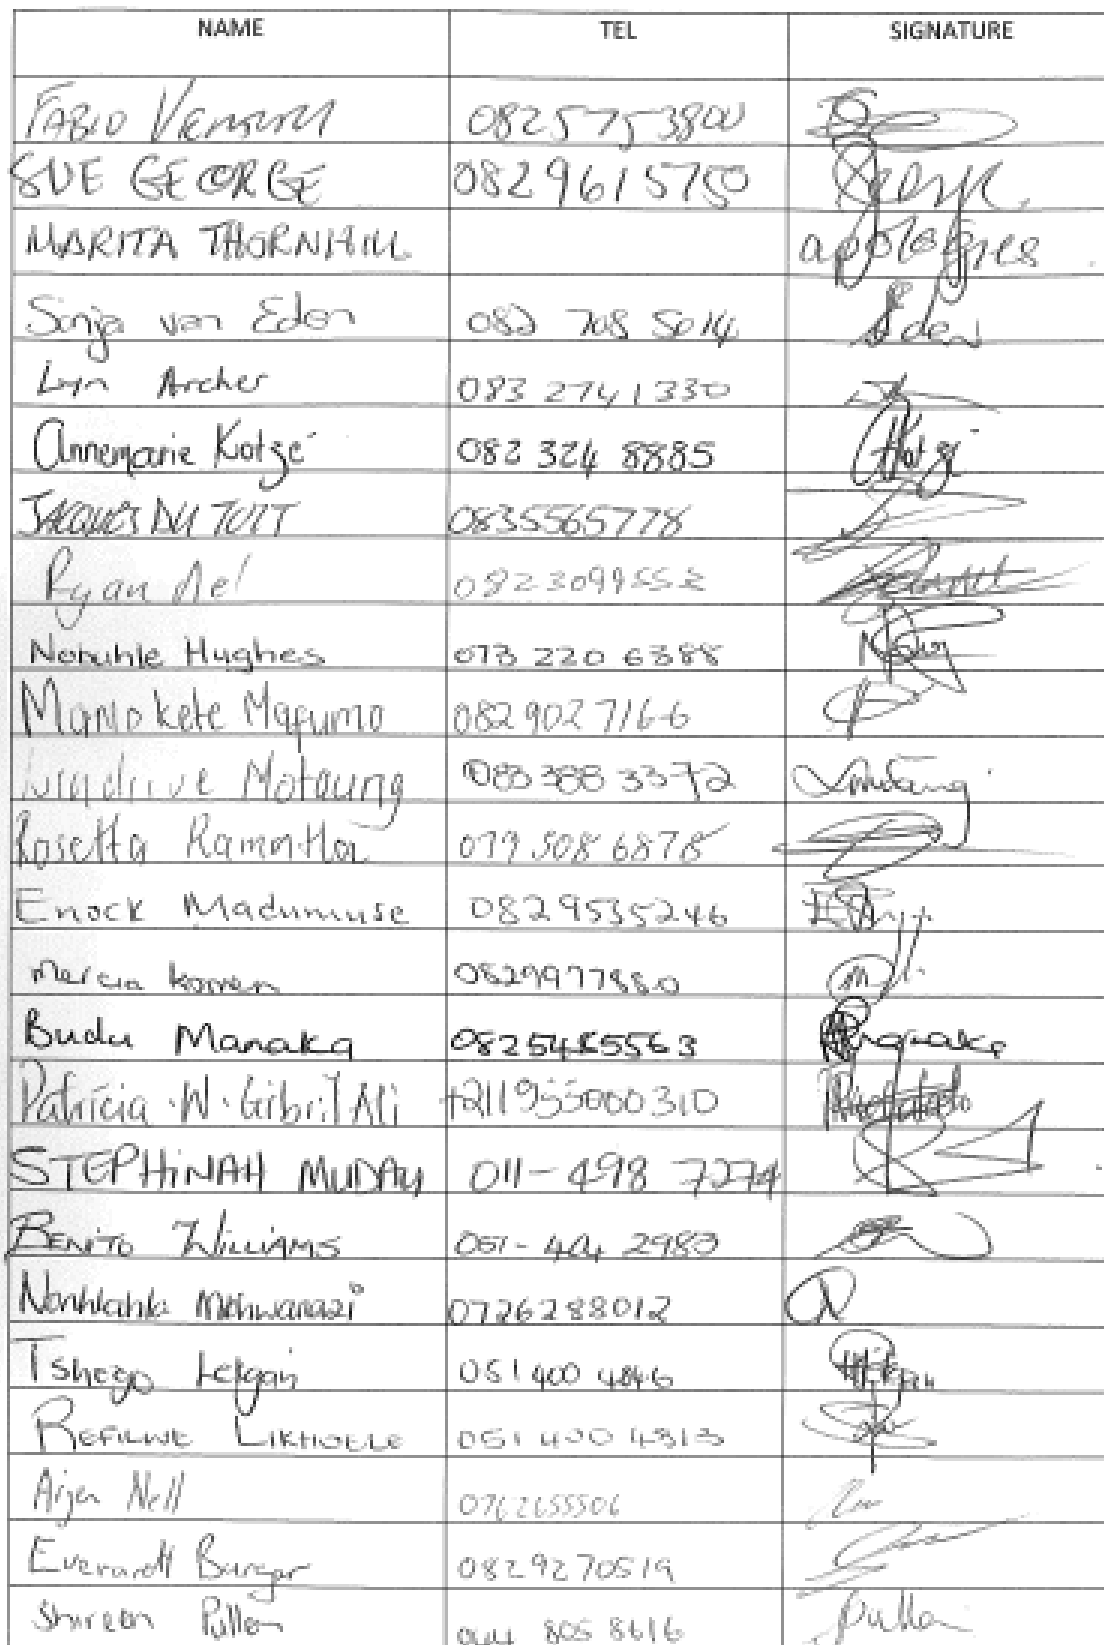 NAME TEL SIGNATURE
FABIO 0825753800
SUE GEORGE 0829615750 George
MARITA THORNHILL apologies
Sonja van Eden 082 708 5014 Eden
Lyn Archer 083 2741330
Annemarie Kotzé 082 324 8885 Kotzé
JACQUES DU TOIT 0835565778
Ryan Nel 0823099552
Hughes 073 220 6388
Mamokete Mafumo 0829027166
Motaung 083 388 3372
Rosetta 079 508 6878
Enock 0829535246
Mercia 0829977880
Budu Manaka 0825485563 Manaka
Patricia .W. Gibril Ali +211955000310
STEPHINAH MUDAU 011-498 7274
BENITO WILLIAMS 051-404 2983
0726288012
Tshego 051 400 4846
REFILWE 051 400 4313
Arjen Nell
Everardt Burger 0829270519
Shireen Pullen 044 805 8616 Pullen